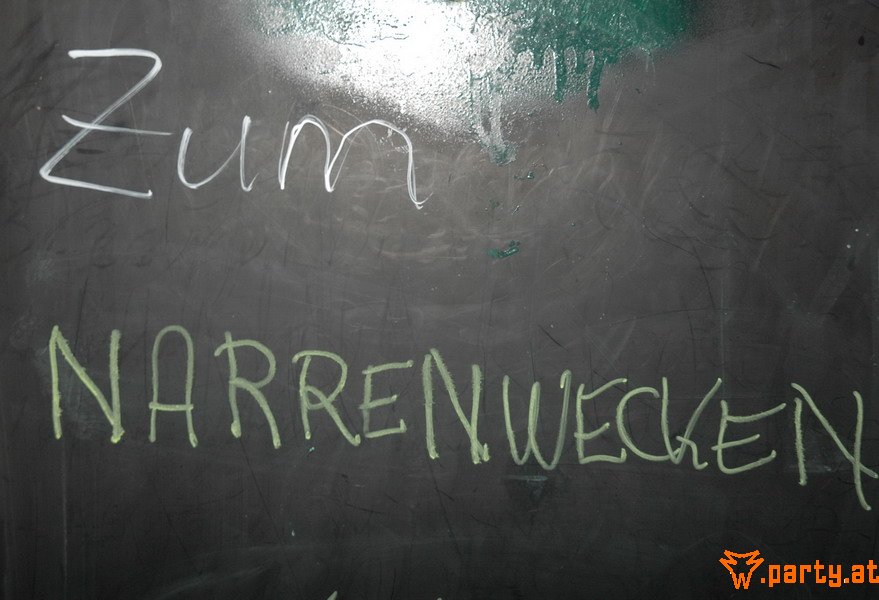 Zum
NARRENWECKEN
w.party.at